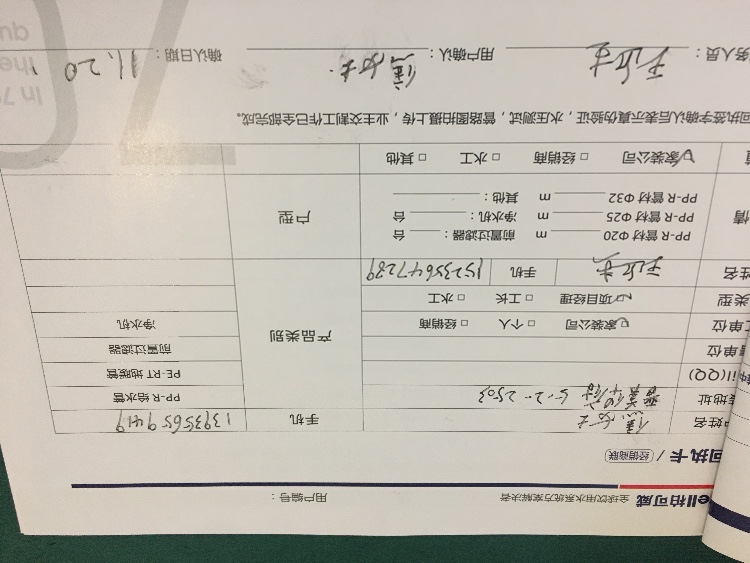 ell柏可威 全球饮用水系统方案解决者 用户编号：
回执卡 / 经销商联
户姓名 手机 13935659419
装地址 5-2-2503 PP-R 给水管
il(QQ) PE-RT 地暖管
单位 前置过滤器
工单位 ☑ 家装公司 □ 个人 □ 经销商 产品类别 净水机
类型 ☑ 项目经理 □ 工长 □ 水工
姓名 手机 15235647289
PP-R 管材 Φ20 ____ m 前置过滤器：____ 台
PP-R 管材 Φ25 ____ m 净水机：____ 台 户型
PP-R 管材 Φ32 ____ m 其他：____
☑ 家装公司 □ 经销商 □ 水工 □ 其他
回执签字确认后表示真伪验证，水压测试，管路图拍摄上传，业主交割工作已全部完成。
务人员： 用户确认： 确认日期：11.20
In 7
the
qu